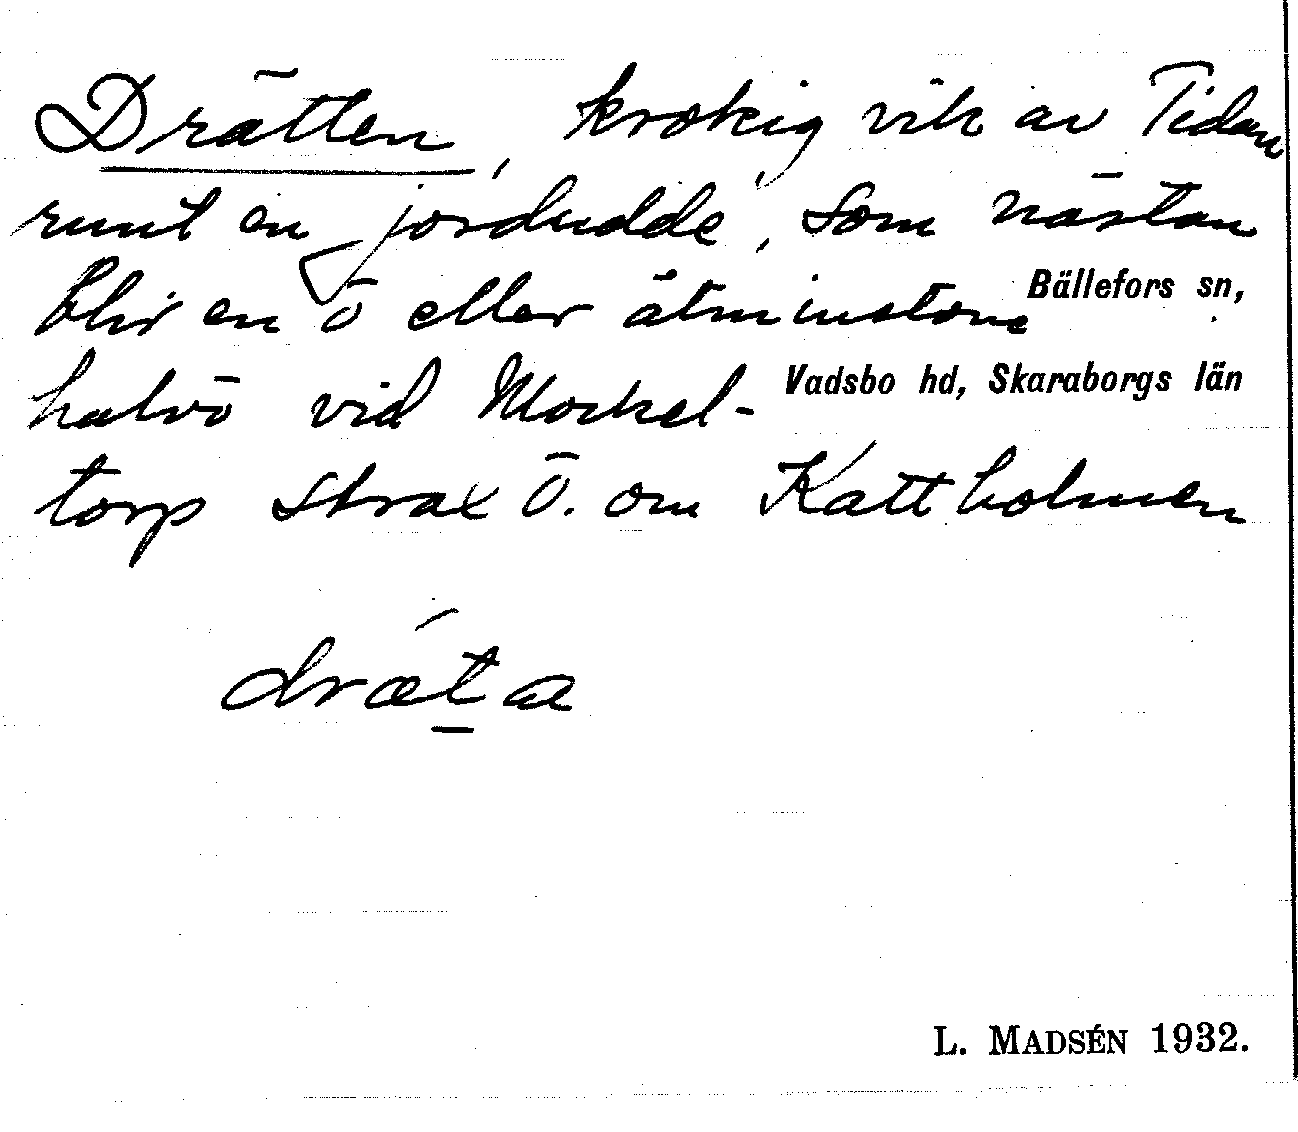 Drätten, krokig vik av Tidan
runt en jordudde, som nästan
blir en ö eller åtminstone
Bällefors sn,
halvö vid Mockel-
Vadsbo hd, Skaraborgs län
torp strax Ö. om Kattholmen
drǽt̲a
L. MADSÉN 1932.